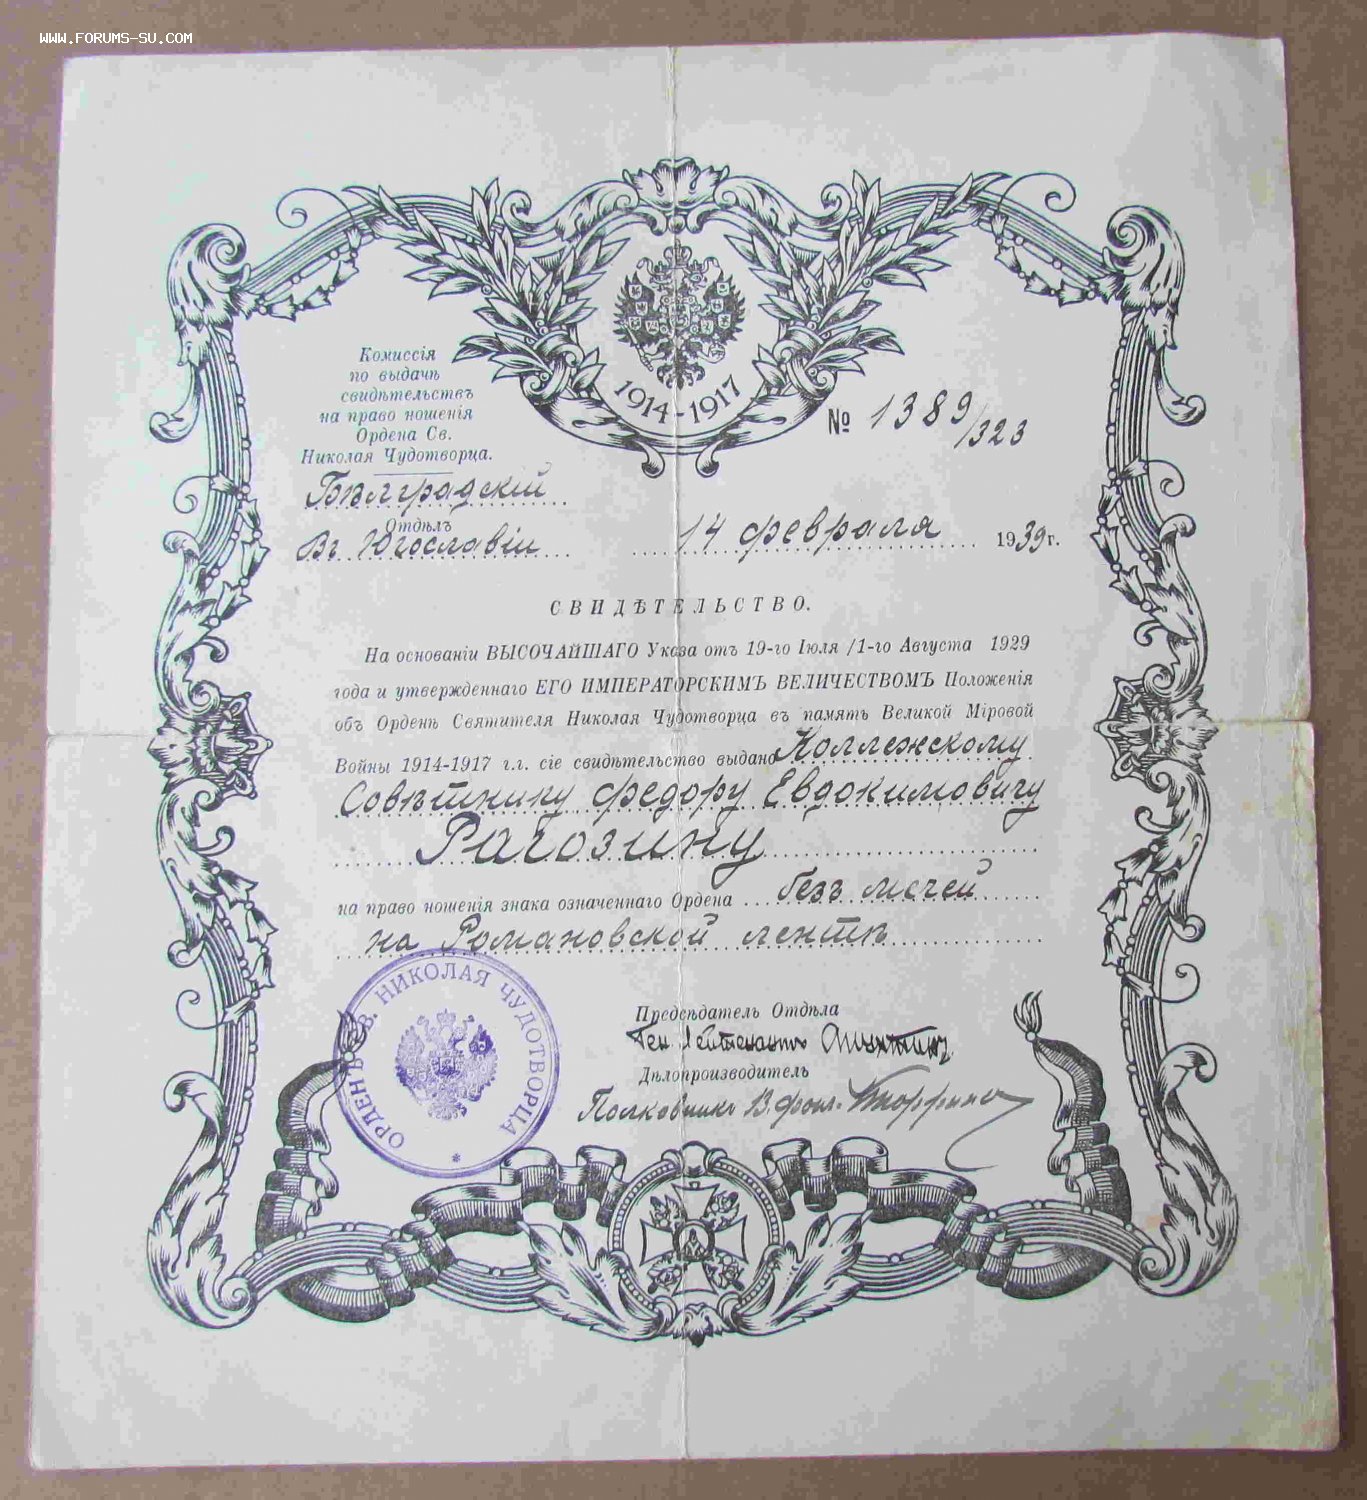 WWW.FORUMS-SU.COM
1914-1917
Комиссія
по выдачѣ
свидѣтельствъ
на право ношенія
Ордена Св.
Николая Чудотворца.
№ 1389/323
Бѣлградскій
Отдѣлъ
Въ Югославіи
14 февраля 1939 г.
СВИДѢТЕЛЬСТВО.
На основаніи ВЫСОЧАЙШАГО Указа отъ 19-го Іюля /1-го Августа 1929
года и утвержденнаго ЕГО ИМПЕРАТОРСКИМЪ ВЕЛИЧЕСТВОМЪ Положенія
объ Орденѣ Святителя Николая Чудотворца въ память Великой Міровой
Войны 1914-1917 г.г. сіе свидѣтельство выдано Коллежскому
Совѣтнику Федору Евдокимовичу
Рагозину
на право ношенія знака означеннаго Ордена безъ мечей
на Романовской лентѣ
ОРДЕНЪ СВ. НИКОЛАЯ ЧУДОТВОРЦА
Предсѣдатель Отдѣла
Ген. Лейтенантъ
Дѣлопроизводитель
Полковникъ В. фон-